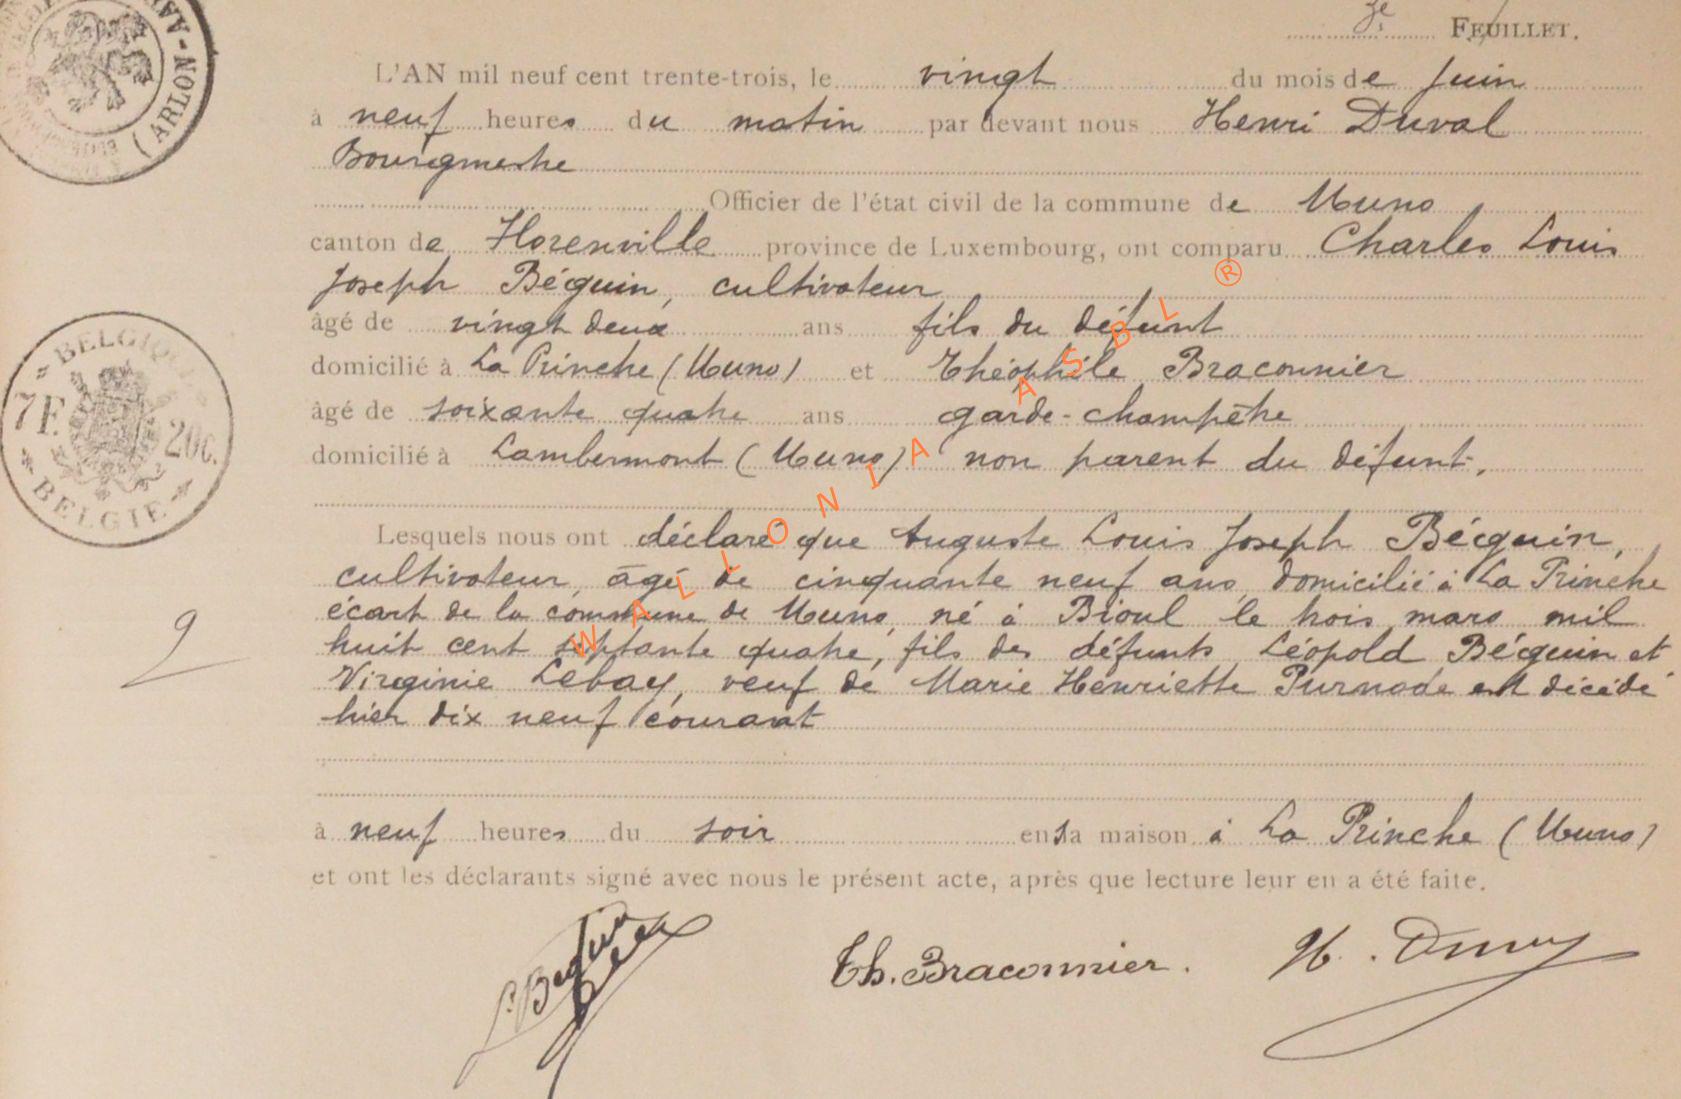 3e FEUILLET.
L'AN mil neuf cent trente-trois, le vingt du mois de Juin
à neuf heures du matin par devant nous Henri Duval
Bourgmestre
Officier de l'état civil de la commune de Muno
canton de Florenville province de Luxembourg, ont comparu Charles Louis
Joseph Béguin, cultivateur
âgé de vingt deux ans fils du défunt
domicilié à La Prinche (Muno) et Théophile Braconnier
âgé de soixante quatre ans garde-champêtre
domicilié à Lambermont (Muno) non parent du défunt.
Lesquels nous ont déclaré que Auguste Louis Joseph Béguin,
cultivateur, âgé de cinquante neuf ans, domicilié à La Prinche
écart de la commune de Muno, né à Bioul le trois mars mil
huit cent septante quatre, fils des défunts Léopold Béguin et
Virginie Lebay, veuf de Marie Henriette Purnode est décédé
hier dix neuf courant
à neuf heures du soir en sa maison à La Prinche (Muno)
et ont les déclarants signé avec nous le présent acte, après que lecture leur en a été faite.
Th. Braconnier.
(ARLON-
BELGIQUE
7F. 20c.
BELGIE
2
WALLONIA ASBL ®